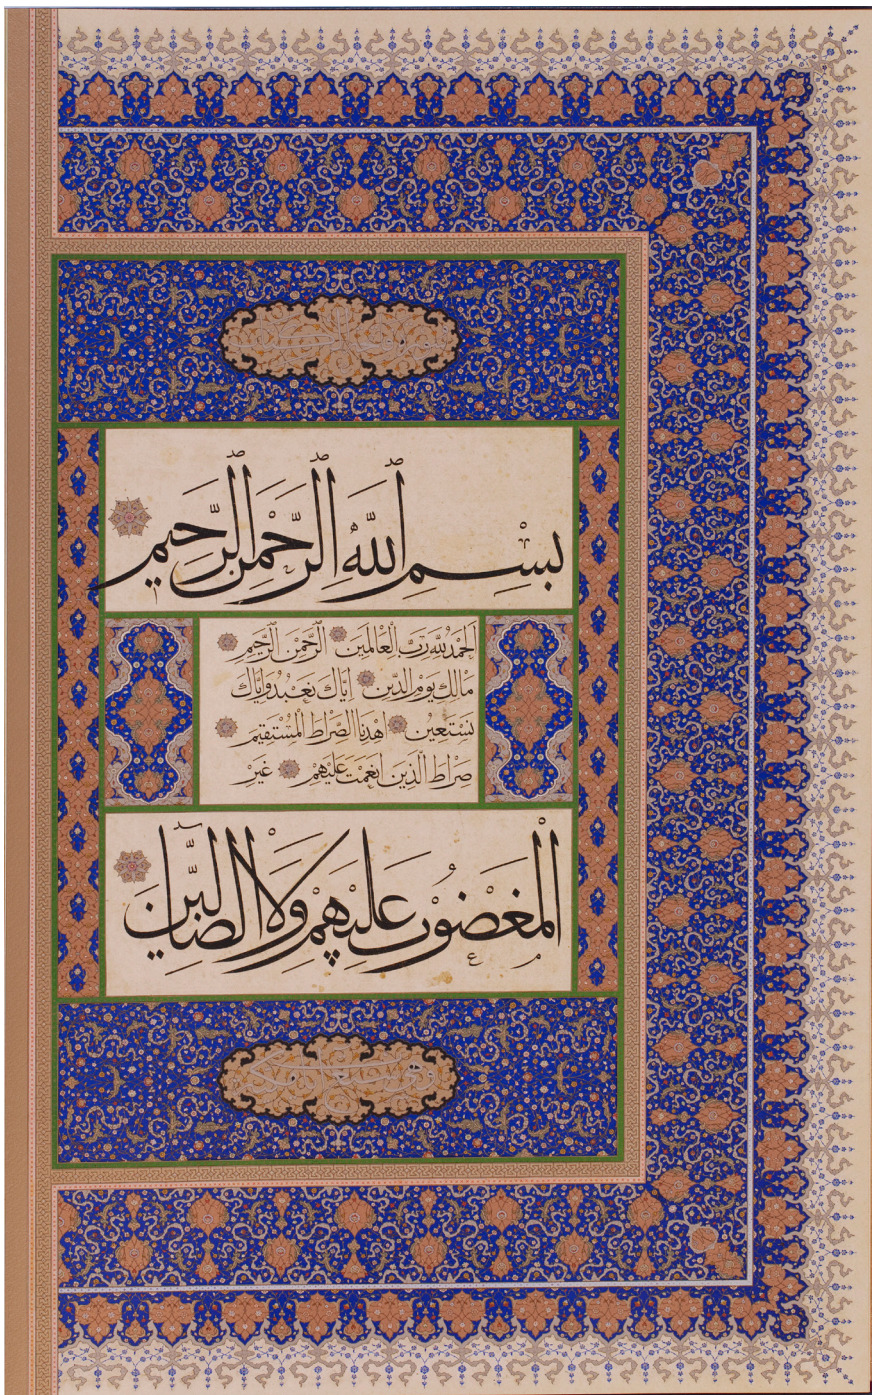 بِسْمِ اللَّهِ الرَّحْمٰنِ الرَّحِيمِ
اَلْحَمْدُ لِلّٰهِ رَبِّ الْعَالَمِينَ الرَّحْمٰنِ الرَّحِيمِ
مَالِكِ يَوْمِ الدِّينِ اِيَّاكَ نَعْبُدُ وَاِيَّاكَ
نَسْتَعِينُ اِهْدِنَا الصِّرَاطَ الْمُسْتَقِيمَ
صِرَاطَ الَّذِينَ اَنْعَمْتَ عَلَيْهِمْ غَيْرِ
الْمَغْضُوبِ عَلَيْهِمْ وَلَا الضَّالِّينَ